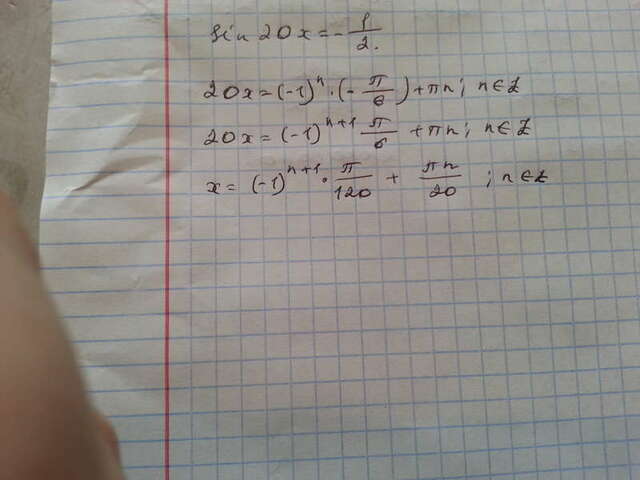 sin 20x = - 1/2.
20x = (-1)^n · (- π/6) + πn; n ∈ Z
20x = (-1)^(n+1) π/6 + πn; n ∈ Z
x = (-1)^(n+1) · π/120 + πn/20 ; n ∈ Z